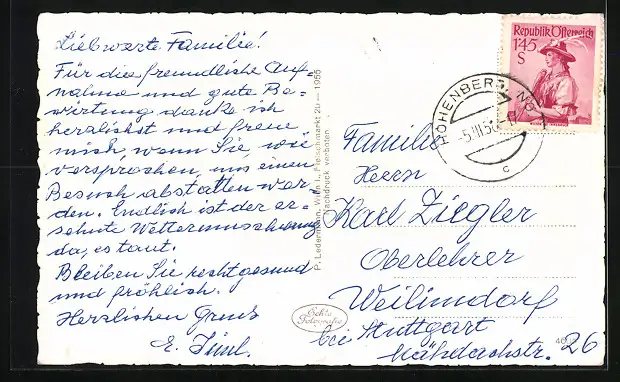 Liebwerte Familie!
Für die freundliche Auf-
nahme und gute Be-
wirtung danke ich
herzlichst und freue
mich, wenn Sie, wie
versprochen, uns einen
Besuch abstatten wer-
den. Endlich ist der er-
sehnte Wetterumschwung
da, es taut.
Bleiben Sie recht gesund
und fröhlich.
Herzlichen Gruß
P. Ledermann, Wien I., Fleischmarkt 20 — 1955
Nachdruck verboten.
Echte
Fotografie
Republik Österreich
1'45
S
HOHENBERG, N.Ö.
-5.III.56
c
Familie
Herrn
Karl Ziegler
Oberlehrer
Weilimdorf
bei Stuttgart
Mähdachstr. 26